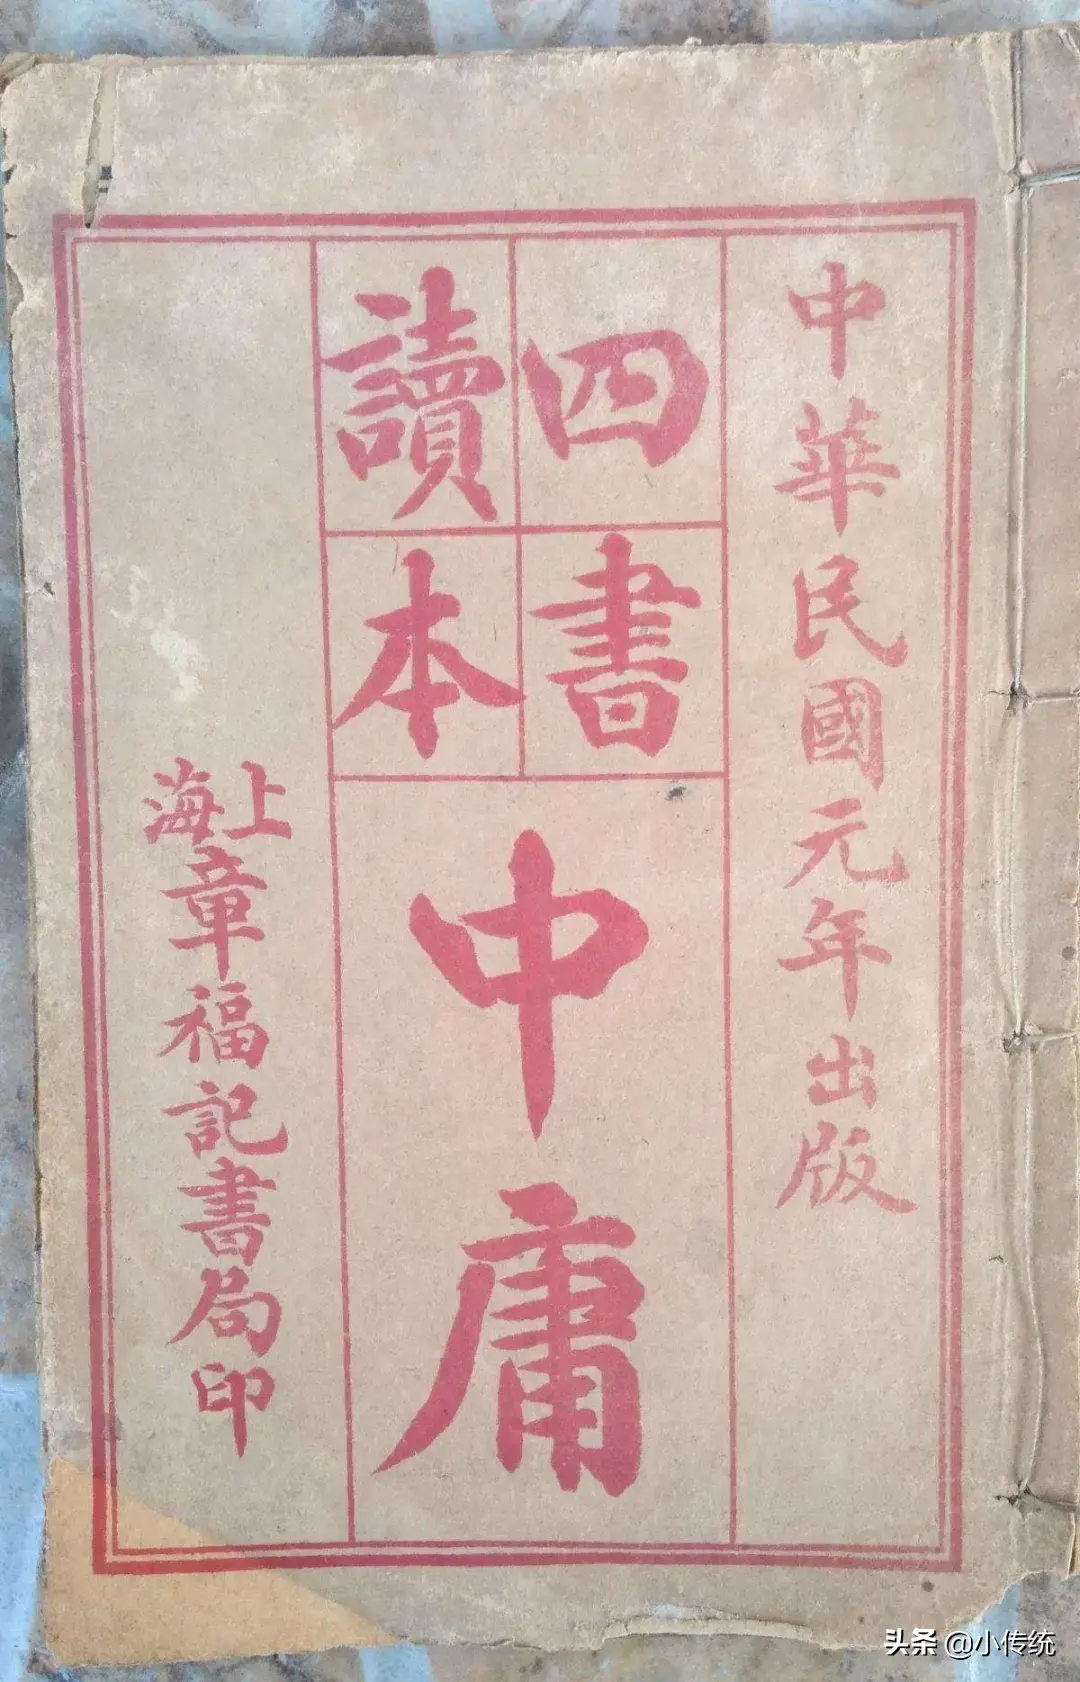 中華民國元年出版
四書
讀本
中庸
上海章福記書局印
头条 @小传统